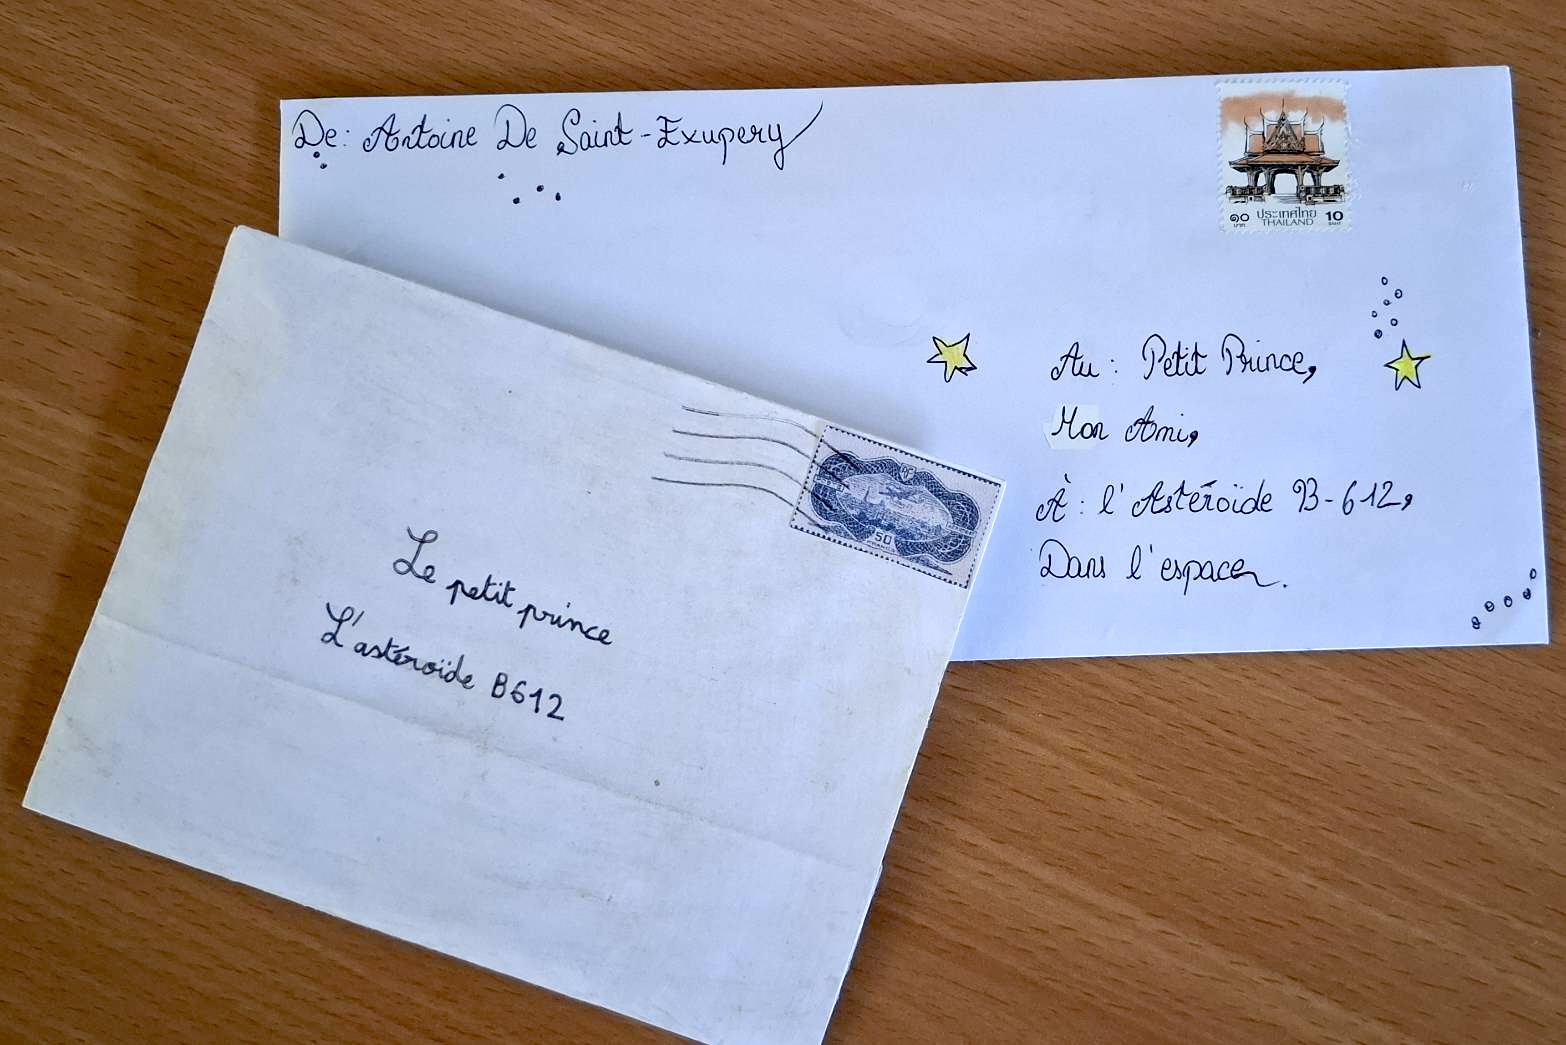 De: Antoine De Saint-Exupery
๑๐ ประเทศไทย 10
บาท THAILAND BAHT
Au: Petit Prince,
Mon Ami,
À: l'Astéroïde B-612,
Dans l'espace.
50
Le petit prince
L'astéroïde B612